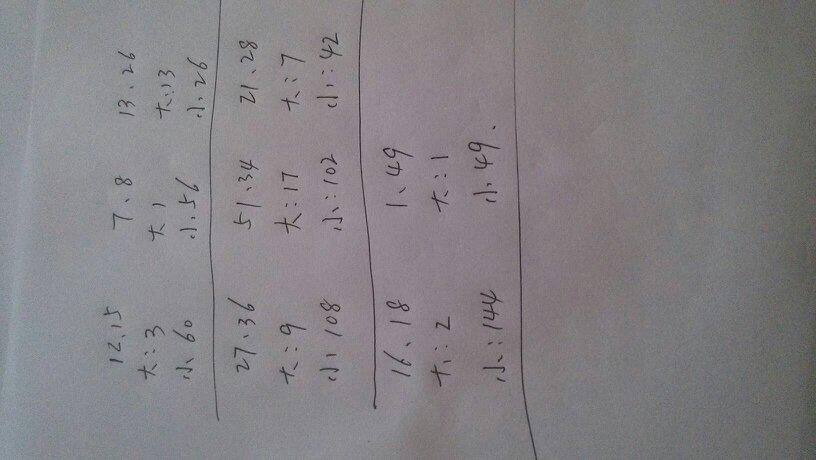 12.15 7、8 13、26
大:3 大1 大:13
小、60 小.56 小、26
27、36 51、34 21、28
大:9 大:17 大:7
小:108 小:102 小:42
16、18 1、49
大:2 大:1
小:144 小、49.